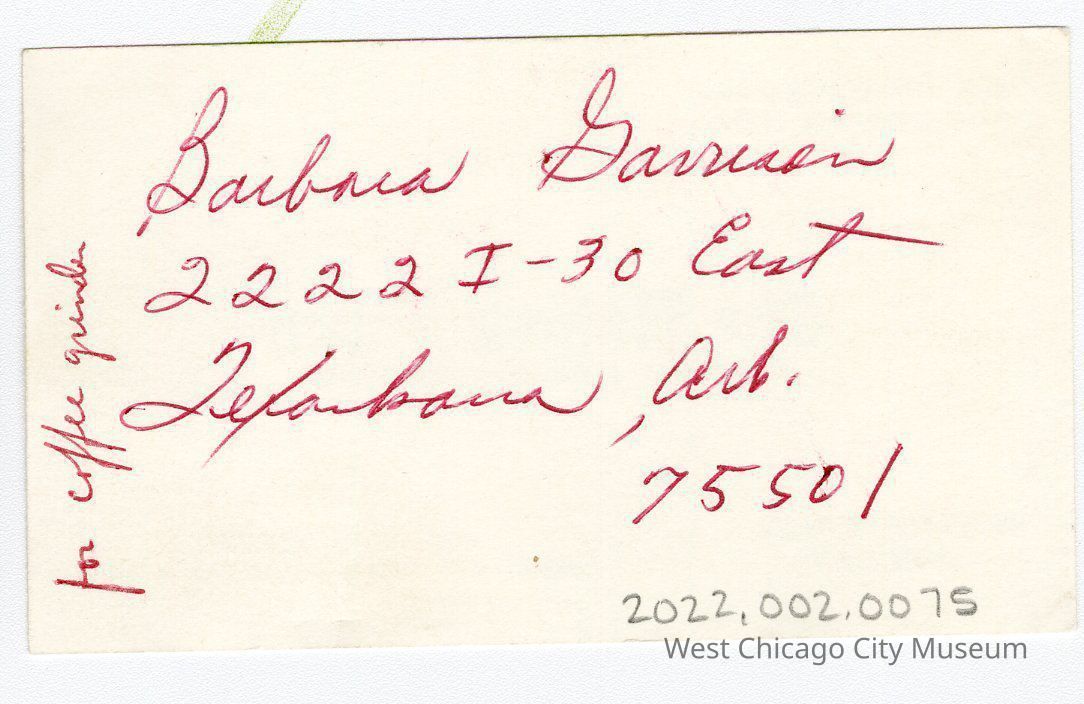 Barbara Garrison
2222 I-30 East
Texarkana, Ark.
75501
for coffee grinder
2022.002.0075
West Chicago City Museum